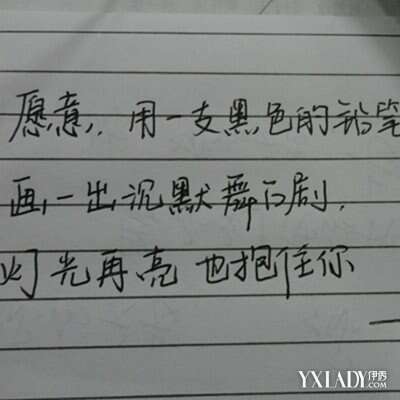 愿意,. 用一支黑色的铅笔
画一出沉默舞台剧.
灯光再亮 也抱住你
—
YXLADY伊秀.com